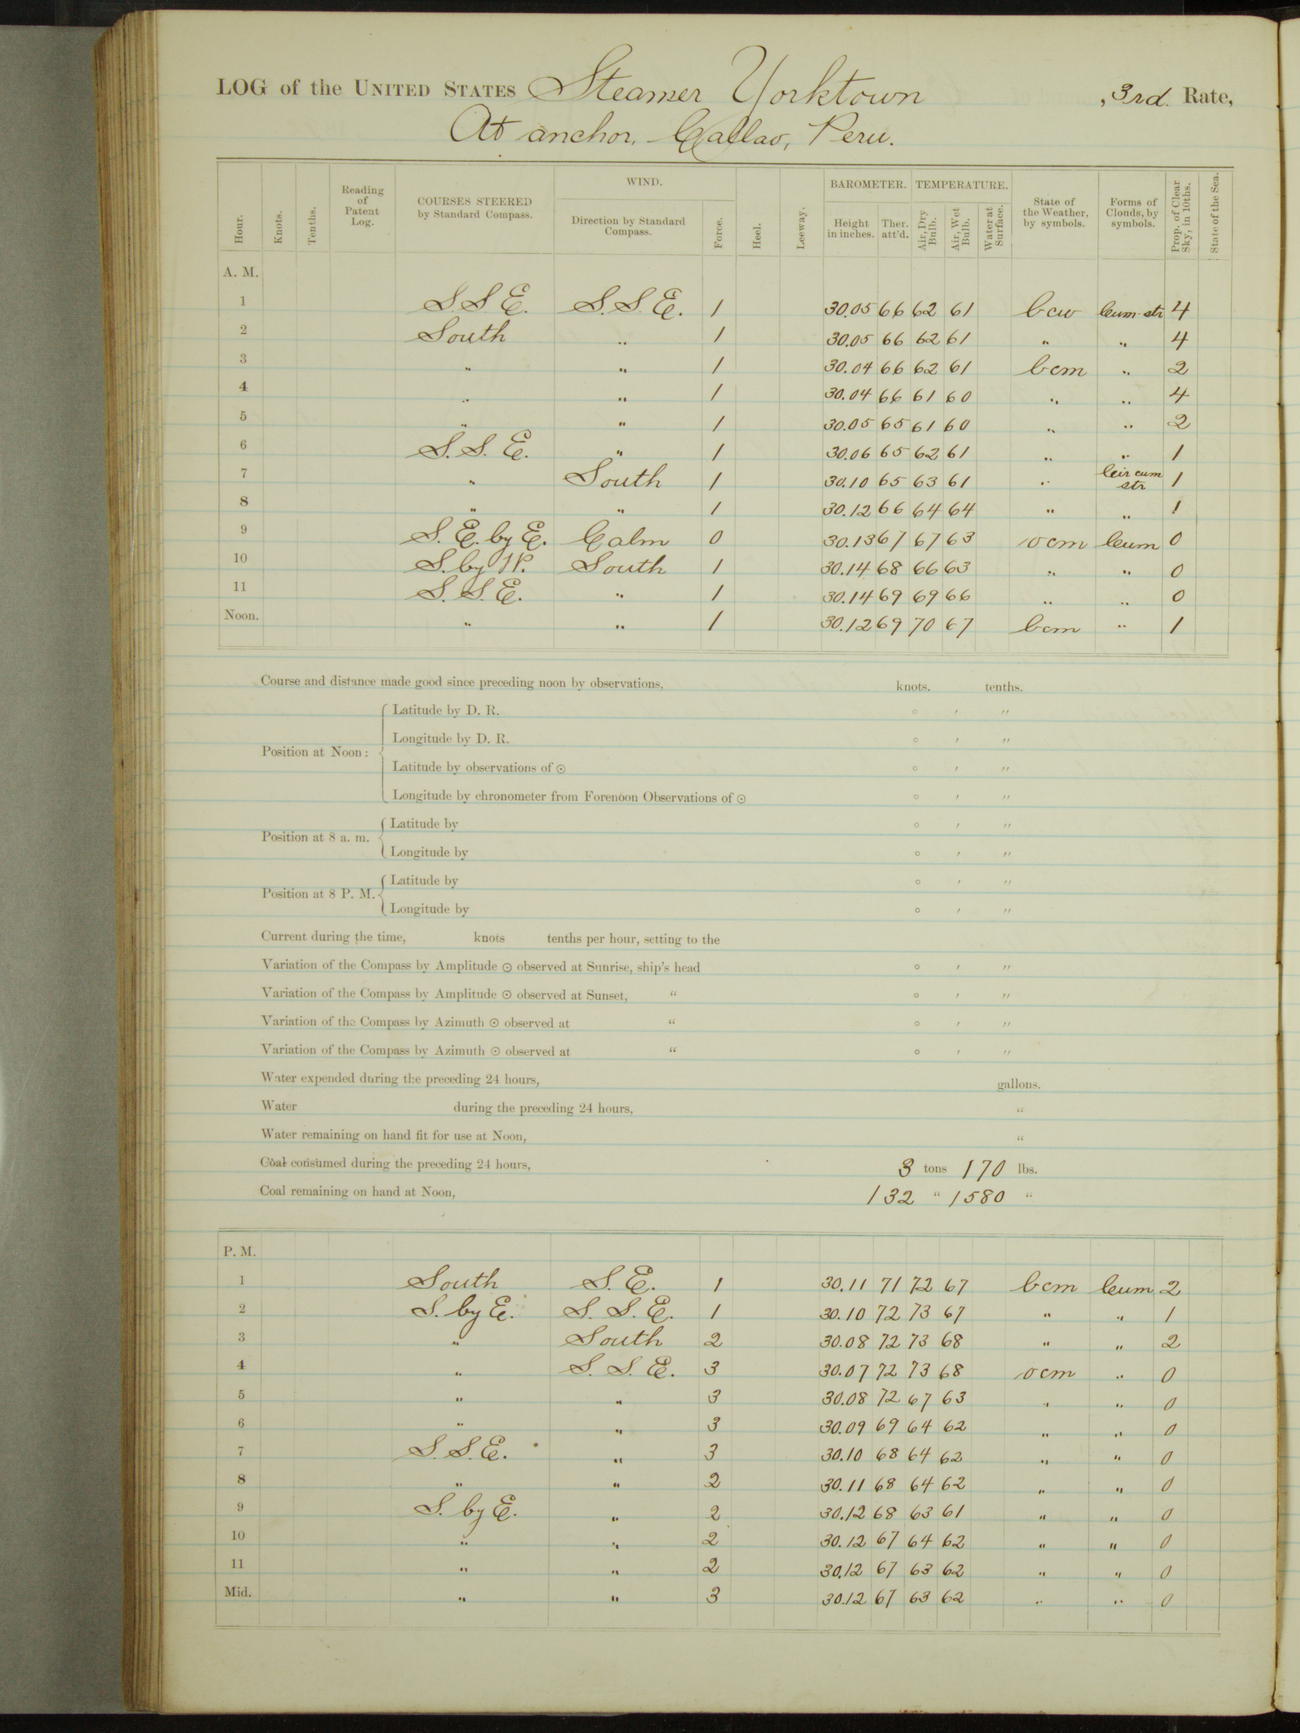 LOG of the UNITED STATES Steamer Yorktown, 3rd. Rate,
At anchor, Callao, Peru.
Hour. Knots. Tenths. Reading of Patent Log. COURSES STEERED by Standard Compass. WIND. Direction by Standard Compass. Force. Heel. Leeway. BAROMETER. Height in inches. Ther. att'd. TEMPERATURE. Air, Dry Bulb. Air, Wet Bulb. Water at Surface. State of the Weather, by symbols. Forms of Clouds, by symbols. Prop. of Clear Sky, in 10ths. State of the Sea.
A. M.
1 S.S.E. S.S.E. 1 30.05 66 62 61 bcw Cum-str 4
2 South " 1 30.05 66 62 61 " " 4
3 " " 1 30.04 66 62 61 bcm " 2
4 " " 1 30.04 66 61 60 " " 4
5 " " 1 30.05 65 61 60 " " 2
6 S.S.E. " 1 30.06 65 62 61 " " 1
7 " South 1 30.10 65 63 61 " Cir cum str 1
8 " " 1 30.12 66 64 64 " " 1
9 S.E. by E. Calm 0 30.13 67 67 63 ocm Cum 0
10 S. by W. South 1 30.14 68 66 63 " " 0
11 S.S.E. " 1 30.14 69 69 66 " " 0
Noon. " " 1 30.12 69 70 67 bcm " 1
Course and distance made good since preceding noon by observations, knots. tenths.
Latitude by D. R. ° ' "
Longitude by D. R. ° ' "
Position at Noon:
Latitude by observations of ☉ ° ' "
Longitude by chronometer from Forenoon Observations of ☉ ° ' "
Latitude by ° ' "
Position at 8 a. m.
Longitude by ° ' "
Latitude by ° ' "
Position at 8 P. M.
Longitude by ° ' "
Current during the time, knots tenths per hour, setting to the
Variation of the Compass by Amplitude ☉ observed at Sunrise, ship's head ° ' "
Variation of the Compass by Amplitude ☉ observed at Sunset, " ° ' "
Variation of the Compass by Azimuth ☉ observed at " ° ' "
Variation of the Compass by Azimuth ☉ observed at " ° ' "
Water expended during the preceding 24 hours, gallons.
Water during the preceding 24 hours, "
Water remaining on hand fit for use at Noon, "
Coal consumed during the preceding 24 hours, 3 tons 170 lbs.
Coal remaining on hand at Noon, 132 " 1580 "
P. M.
1 South S.E. 1 30.11 71 72 67 bcm Cum 2
2 S. by E. S.S.E. 1 30.10 72 73 67 " " 1
3 " South 2 30.08 72 73 68 " " 2
4 " S.S.E. 3 30.07 72 73 68 ocm " 0
5 " " 3 30.08 72 67 63 " " 0
6 " " 3 30.09 69 64 62 " " 0
7 S.S.E. " 3 30.10 68 64 62 " " 0
8 " " 2 30.11 68 64 62 " " 0
9 S. by E. " 2 30.12 68 63 61 " " 0
10 " " 2 30.12 67 64 62 " " 0
11 " " 2 30.12 67 63 62 " " 0
Mid. " " 3 30.12 67 63 62 " " 0